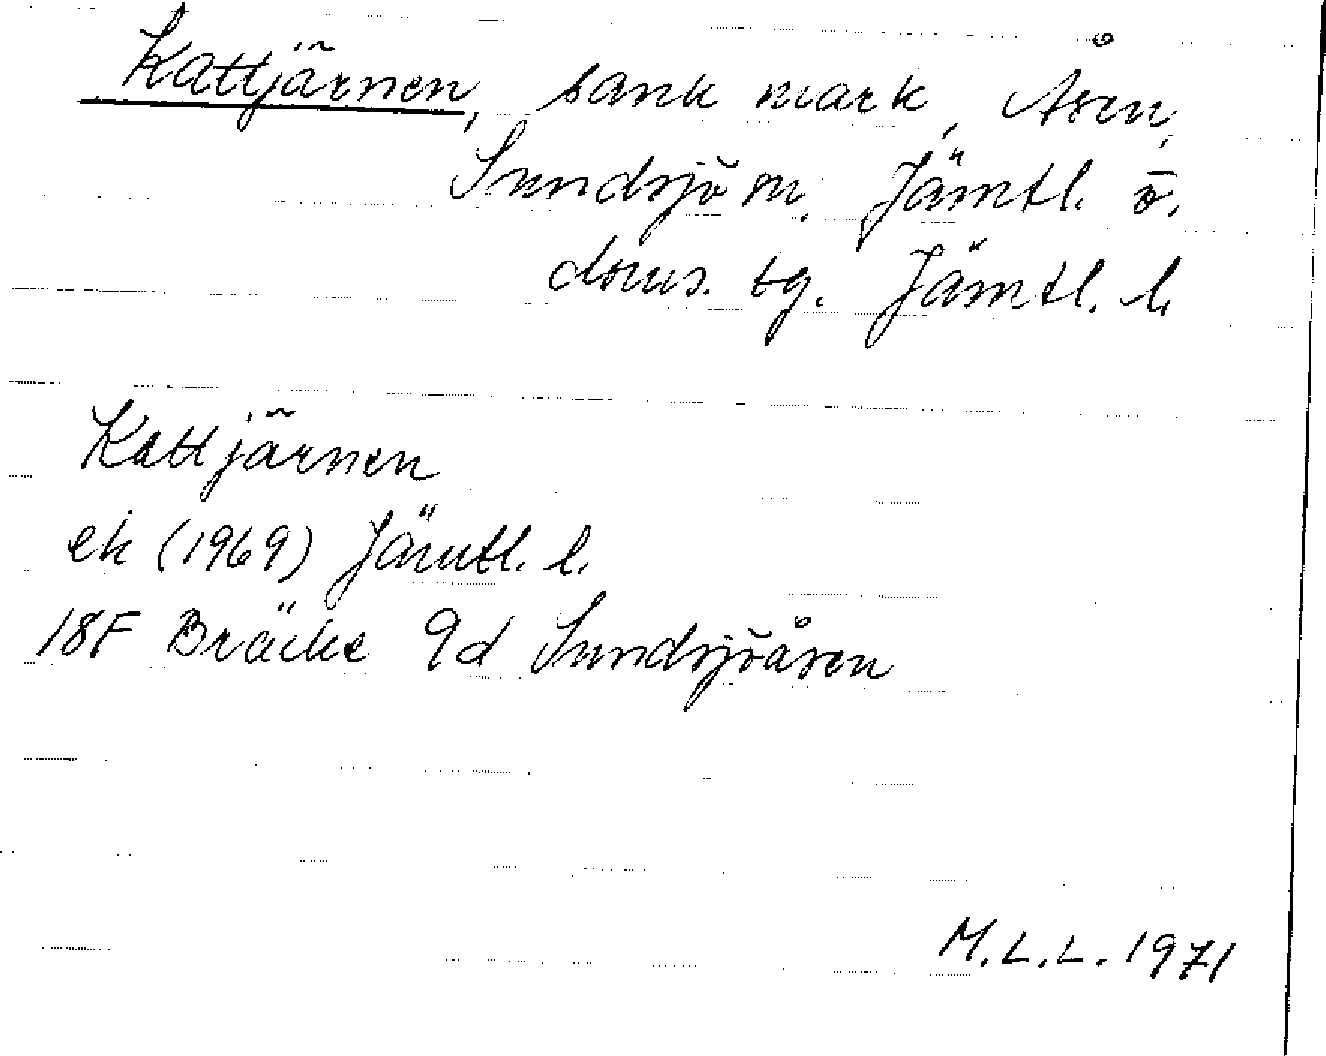 Kattjärnen, sank mark, Åsen,
Sundsjö sn, Jämtl. ö.
doms. tg. Jämtl. l.
Kattjärnen
ek (1969) Jämtl. l.
18F Bräcke 9d Sundsjöåsen
M.L.L. 1971